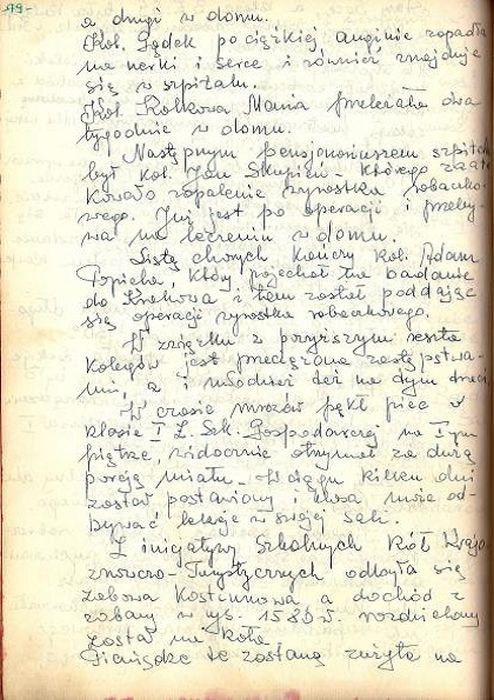 79-
a drugi w domu.
Kol. Gądek po ciężkiej anginie zapadła
na nerki i serce i również znajduje
się w szpitalu.
Kol. Kolkowa Maria przeleżała dwa
tygodnie w domu.
Następnym pensjonariuszem szpitala
był kol. Jan Skupień - którego zaata
kowało zapalenie wyrostka robaczko-
wego. Już jest po operacji i przeby-
wa na leczeniu w domu.
Listę chorych kończy kol. Adam
Papieha, który pojechał na badanie
do Krakowa i tam został poddając
się operacji wyrostka robaczkowego.
W związku z powyższym reszta
kolegów jest przeciążona zastępstwa-
mi, a i młodzież też na tym traci.
W czasie mrozów pękł piec w
klasie I Z. Szk. Gospodarczej na I-ym
piętrze, widocznie otrzymał za dużą
porcję miału. W ciągu kilku dni
został postawiony i klasa może od-
bywać lekcje w swojej sali.
Z inicjatywy Szkolnych Kół Krajo
znawczo-Turystycznych odbyła się
zabawa kostiumowa a dochód z
zabawy w wys. 1580 zł. rozdzielony
został na koła.
Pieniądze te zostaną zużyte na